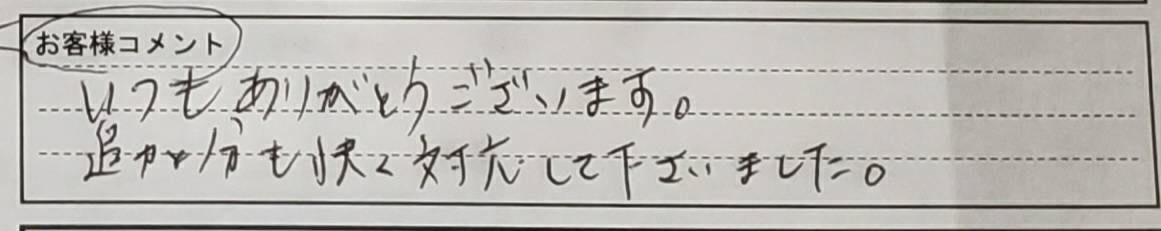 お客様コメント
いつもありがとうございます。
追加分も快く対応して下さいました。